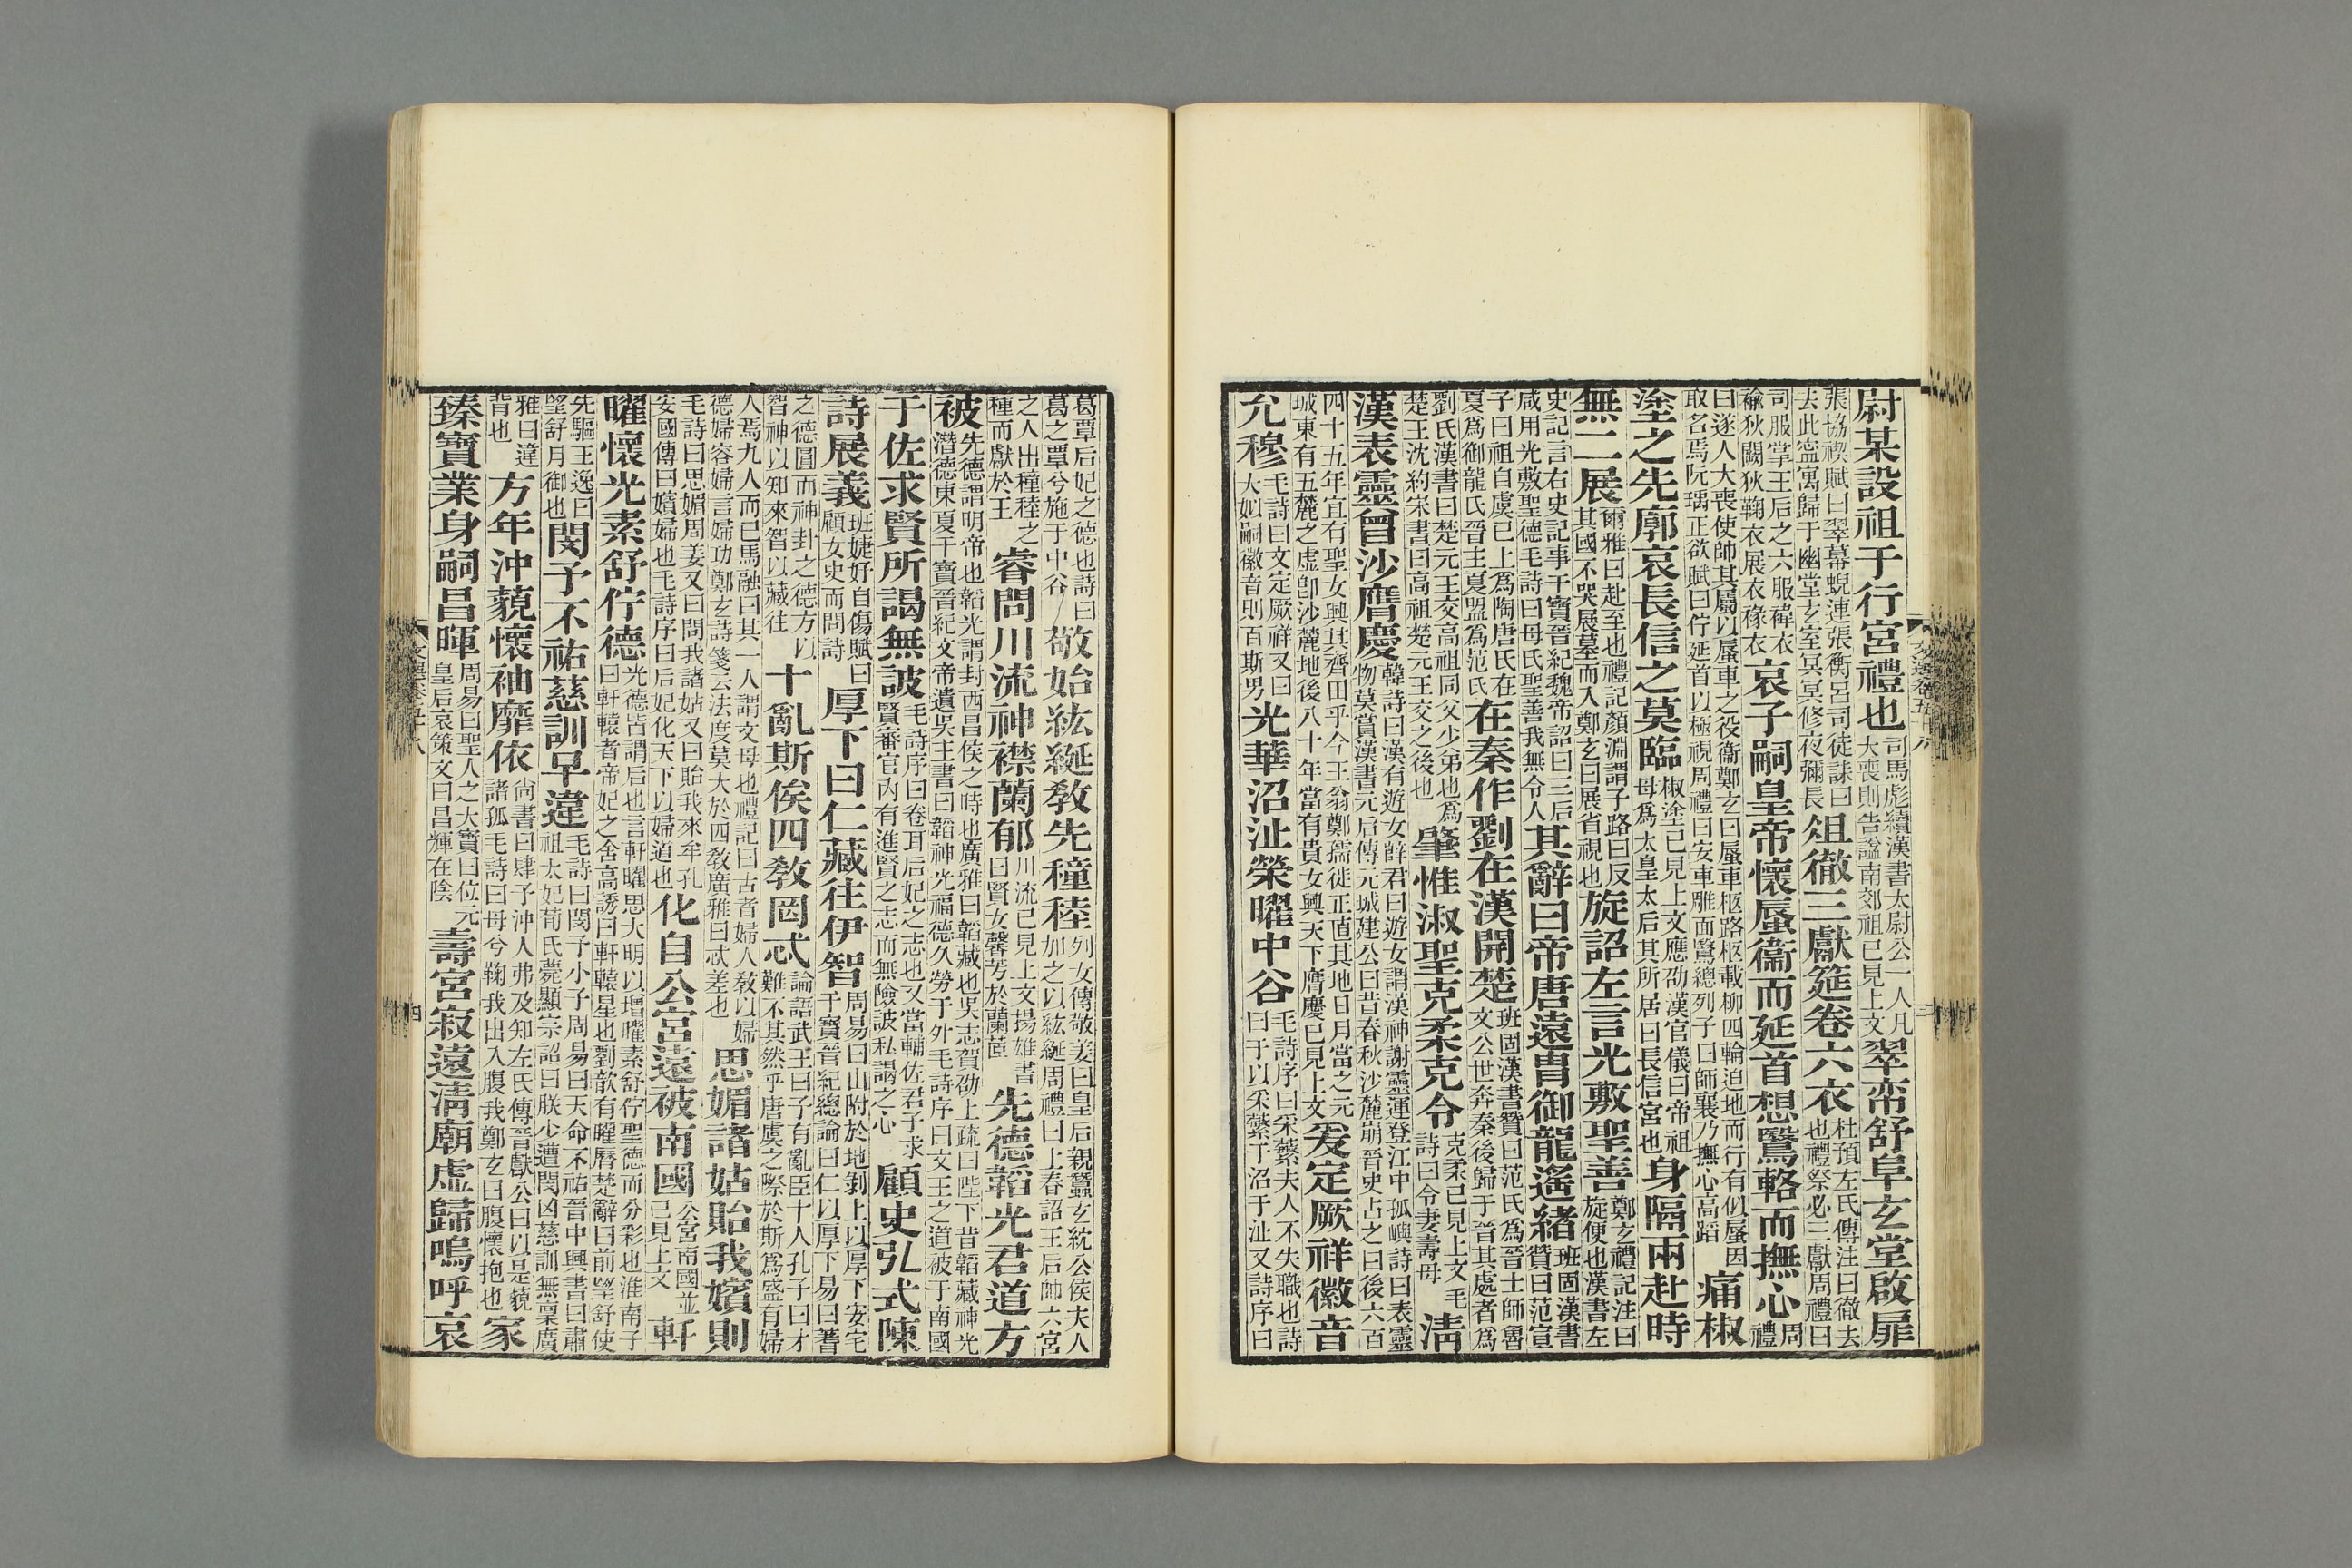 尉某設祖于行宮禮也司馬彪續漢書太尉公一人凡大喪則告謚南郊祖已見上文翠帟舒阜玄堂啟扉
張協禊賦曰翠幕蜺連張衡呂司徒誄曰去此寍寓歸于幽堂玄室冥冥修夜彌長俎徹三獻筵卷六衣杜預左氏傳注曰徹去也禮祭必三獻周禮曰
司服掌王后之六服褘衣褕狄闕狄鞠衣展衣褖衣哀子嗣皇帝懷蜃衞而延首想鷖輅而撫心周禮
曰遂人大喪使帥其屬以蜃車之役衞鄭玄曰蜃車柩路柩載柳四輪迫地而行有似蜃因取名焉阮瑀正欲賦曰佇延首以極視周禮曰安車雕面鷖總列子曰師襄乃撫心高蹈痛椒
塗之先廓哀長信之莫臨椒塗已見上文應劭漢官儀曰帝祖母爲太皇太后其所居曰長信宮也身隔兩赴時
無二展爾雅曰赴至也禮記顏淵謂子路曰反其國不哭展墓而入鄭玄曰展省視也旋詔左言光敷聖善鄭玄禮記注曰旋便也漢書左
史記言右史記事干寶晉紀魏帝詔曰三后咸用光敷聖德毛詩曰母氏聖善我無令人其辭曰帝唐遠冑御龍遙緒班固漢書贊曰范宣
子曰祖自虞已上爲陶唐氏在夏爲御龍氏晉主夏盟爲范氏在秦作劉在漢開楚班固漢書贊曰范氏爲晉士師魯文公世奔秦後歸于晉其處者爲
劉氏漢書曰楚元王交高祖同父少弟也爲楚王沈約宋書曰高祖楚元王交之後也肇惟淑聖克柔克令克柔已見上文毛詩曰令妻壽母清
漢表靈曾沙膺慶韓詩曰漢有遊女薛君曰遊女謂漢神謝靈運登江中孤嶼詩曰表靈物莫賞漢書元后傳元城建公曰昔春秋沙麓崩晉史占之曰後六百
四十五年宜有聖女興其齊田乎今王翁鄭孺徙正值其地日月當之元城東有五麓之虛卽沙麓地後八十年當有貴女興天下膺慶已見上文爰定厥祥徽音
允穆毛詩曰文定厥祥又曰大姒嗣徽音則百斯男光華沼沚榮曜中谷毛詩序曰采蘩夫人不失職也詩曰于以采蘩于沼于沚又詩序曰
文選卷五十八
三
葛覃后妃之德也詩曰葛之覃兮施于中谷敬始紘綖敎先穜稑列女傳敬姜曰皇后親蠶玄紞公侯夫人加之以紘綖周禮曰上春詔王后帥六宮
之人出穜稑之種而獻於王睿問川流神襟蘭郁川流已見上文揚雄書曰賢女馨芳於蘭茝先德韜光君道方
被先德謂明帝也韜光謂封西昌侯之時也廣雅曰韜藏也吳志賀劭上疏曰陛下昔韜藏神光潛德東夏干寶晉紀文帝遺吳主書曰韜神光福德久勞于外毛詩序曰文王之道被于南國
于佐求賢所謁無詖毛詩序曰卷耳后妃之志也又當輔佐君子求賢審官內有進賢之志而無險詖私謁之心顧史弘式陳
詩展義班婕妤自傷賦曰顧女史而問詩厚下曰仁藏往伊智周易曰山附於地剝上以厚下安宅干寶晉紀總論曰仁以厚下易曰蓍
之德圓而神卦之德方以智神以知來智以藏往十亂斯俟四敎罔忒論語武王曰予有亂臣十人孔子曰才難不其然乎唐虞之際於斯爲盛有婦
人焉九人而已馬融曰其一人謂文母也禮記曰古者婦人敎以婦德婦容婦言婦功鄭玄詩箋云法度莫大於四敎廣雅曰忒差也思媚諸姑貽我嬪則
毛詩曰思媚周姜又曰問我諸姑又曰貽我來牟孔安國傳曰嬪婦也毛詩序曰后妃化天下以婦道也化自公宮遠被南國公宮南國並已見上文軒
曜懷光素舒佇德光德皆謂后也言軒曜思大明以增曜素舒佇聖德而分彩也淮南子曰軒轅者帝妃之舍高誘曰軒轅星也劉歆有曜曆楚辭曰前望舒使
先驅王逸曰望舒月御也閔予不祐慈訓早違毛詩曰閔予小子周易曰天命不祐晉中興書曰肅祖太妃荀氏薨顯宗詔曰朕少遭閔凶慈訓無稟廣
雅曰違背也方年沖藐懷袖靡依尚書曰肆予沖人弗及知左氏傳晉獻公曰以是藐諸孤毛詩曰母兮鞠我出入腹我鄭玄曰腹懷抱也家
臻寶業身嗣昌暉周易曰聖人之大寶曰位元皇后哀策文曰昌輝在陰壽宮寂遠清廟虛歸嗚呼哀
文選卷五十八
四